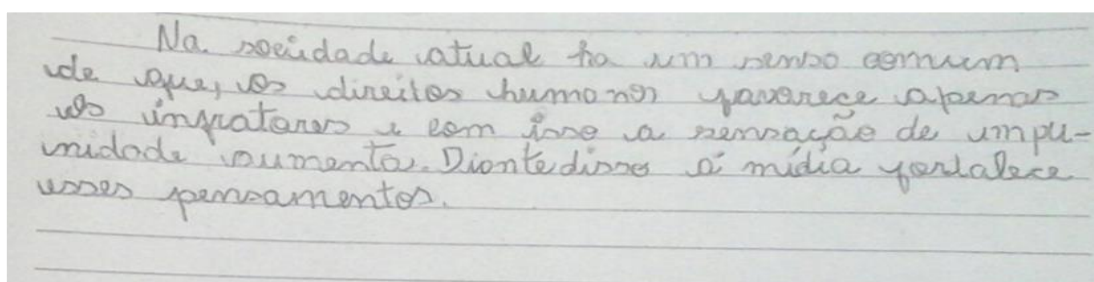 Na sociedade atual ha um senso comum
de que, os direitos humanos favorece apenas
os infratores e com isso a sensação de impu-
nidade aumenta. Diante disso a mídia fortalece
esses pensamentos.